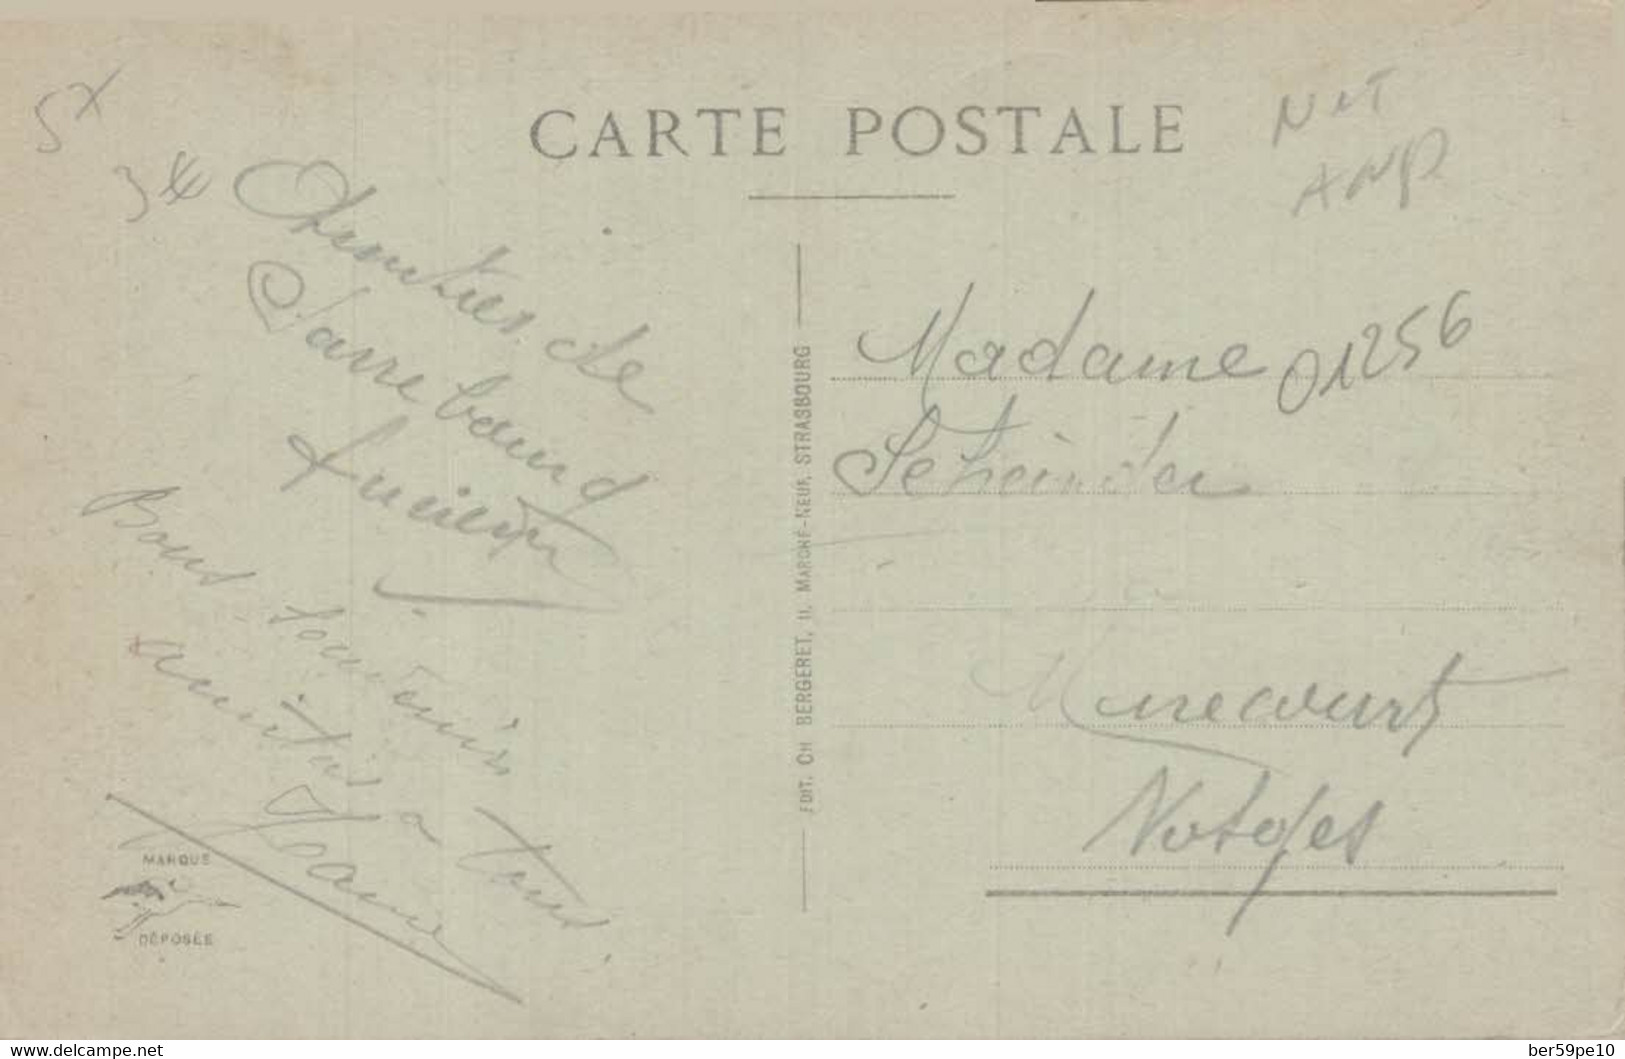 CARTE POSTALE
5x
3
Amitiés de
Sarrebourg
Lucien
Bons souvenirs
amitiés à tous
Jeanne
MARQUE
DÉPOSÉE
EDIT. CH BERGERET, 11, MARCHÉ-NEUF, STRASBOURG
Madame 01256
à
Mirecourt
Vosges
www.delcampe.net
ber59pe10